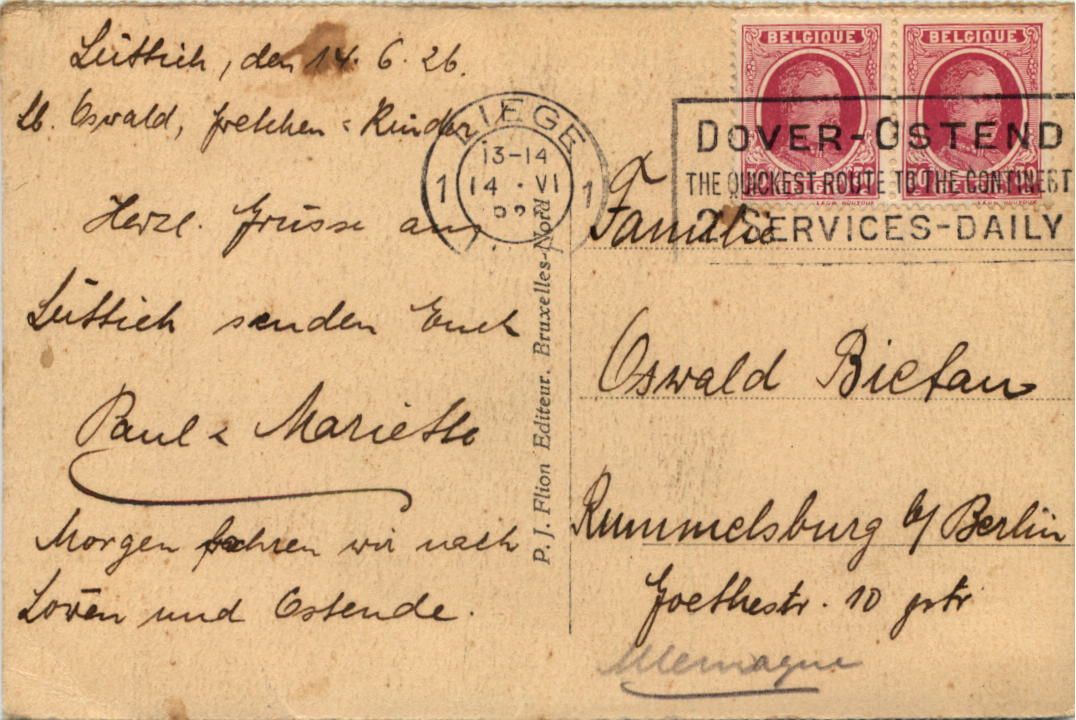 Lüttich, den 14. 6. 26.
Lb. Oswald, Gretchen & Kinder
Herzl. Grüsse aus
Lüttich senden Euch
Paul & Mariette
Morgen fahren wir nach
Löwen und Ostende.
P. J. Flion Editeur. Bruxelles-Nord
LIEGE
13-14
1 14 · VI 1
BELGIQUE BELGIQUE
DOVER-OSTEND
THE QUICKEST ROUTE TO THE CONTINENT
2 SERVICES-DAILY
Familie
Oswald Bietau
Rummelsburg b/ Berlin
Goethestr. 10
Allemagne